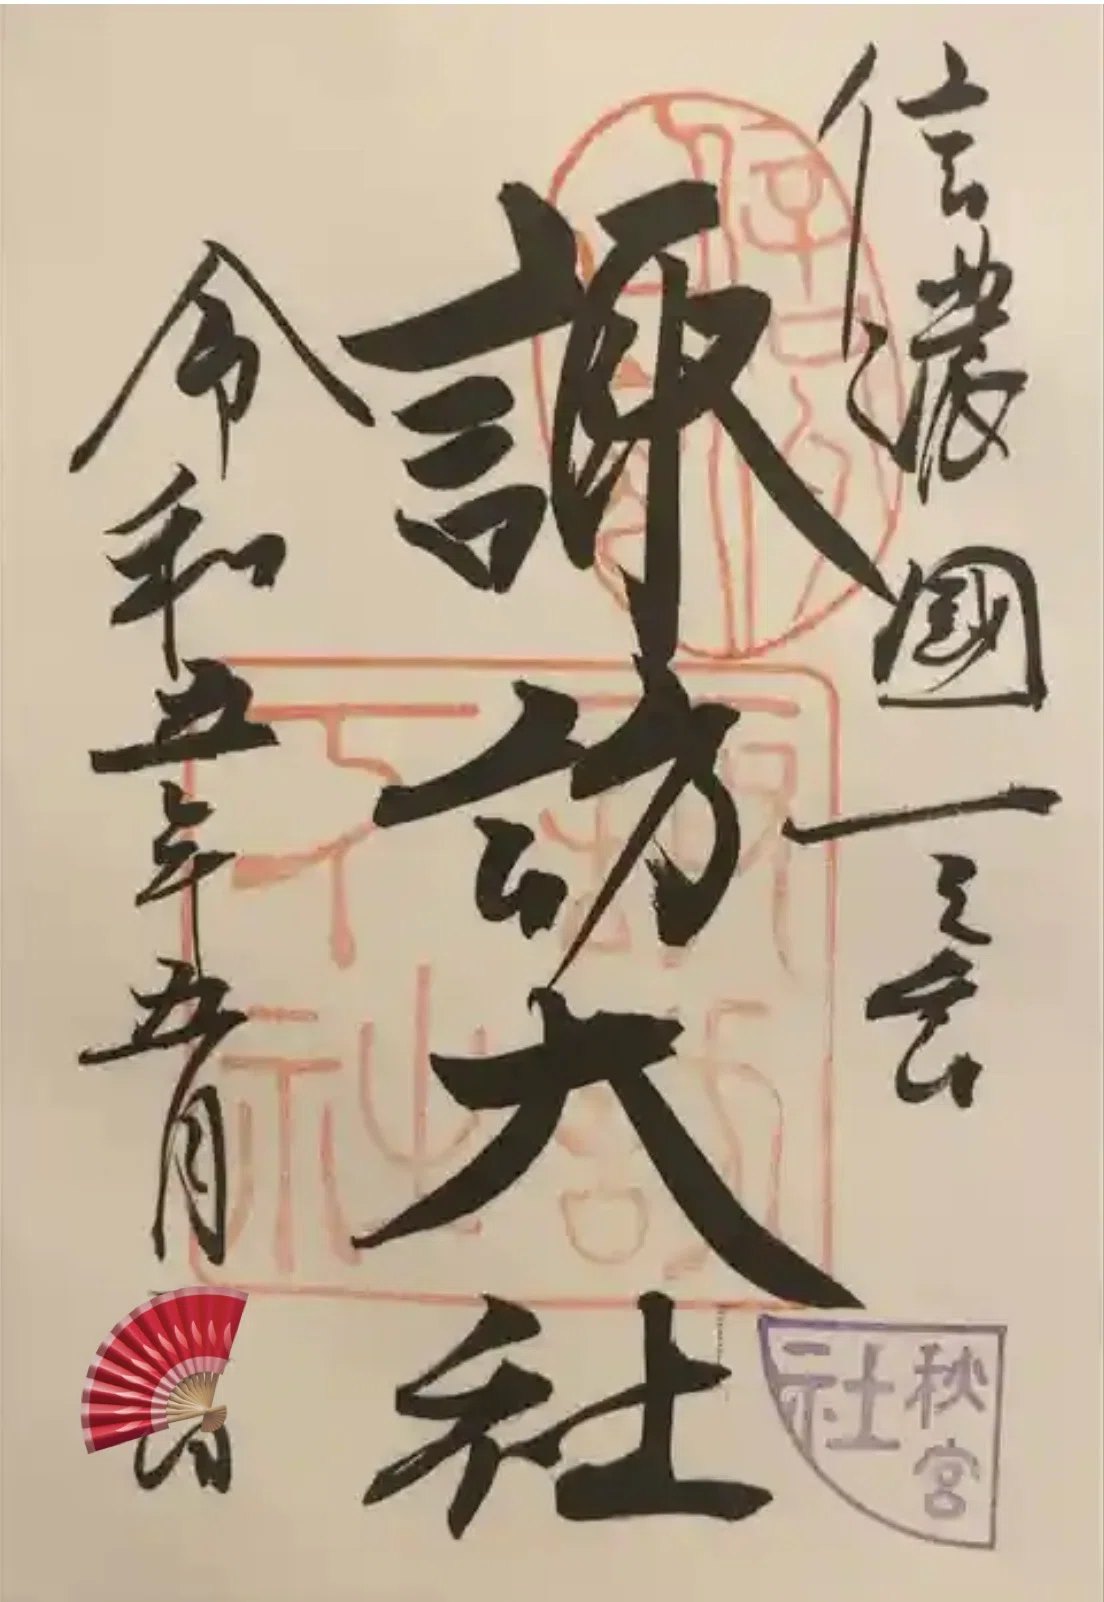 信濃國一之宮
諏訪大社
令和五年五月
秋宮
社